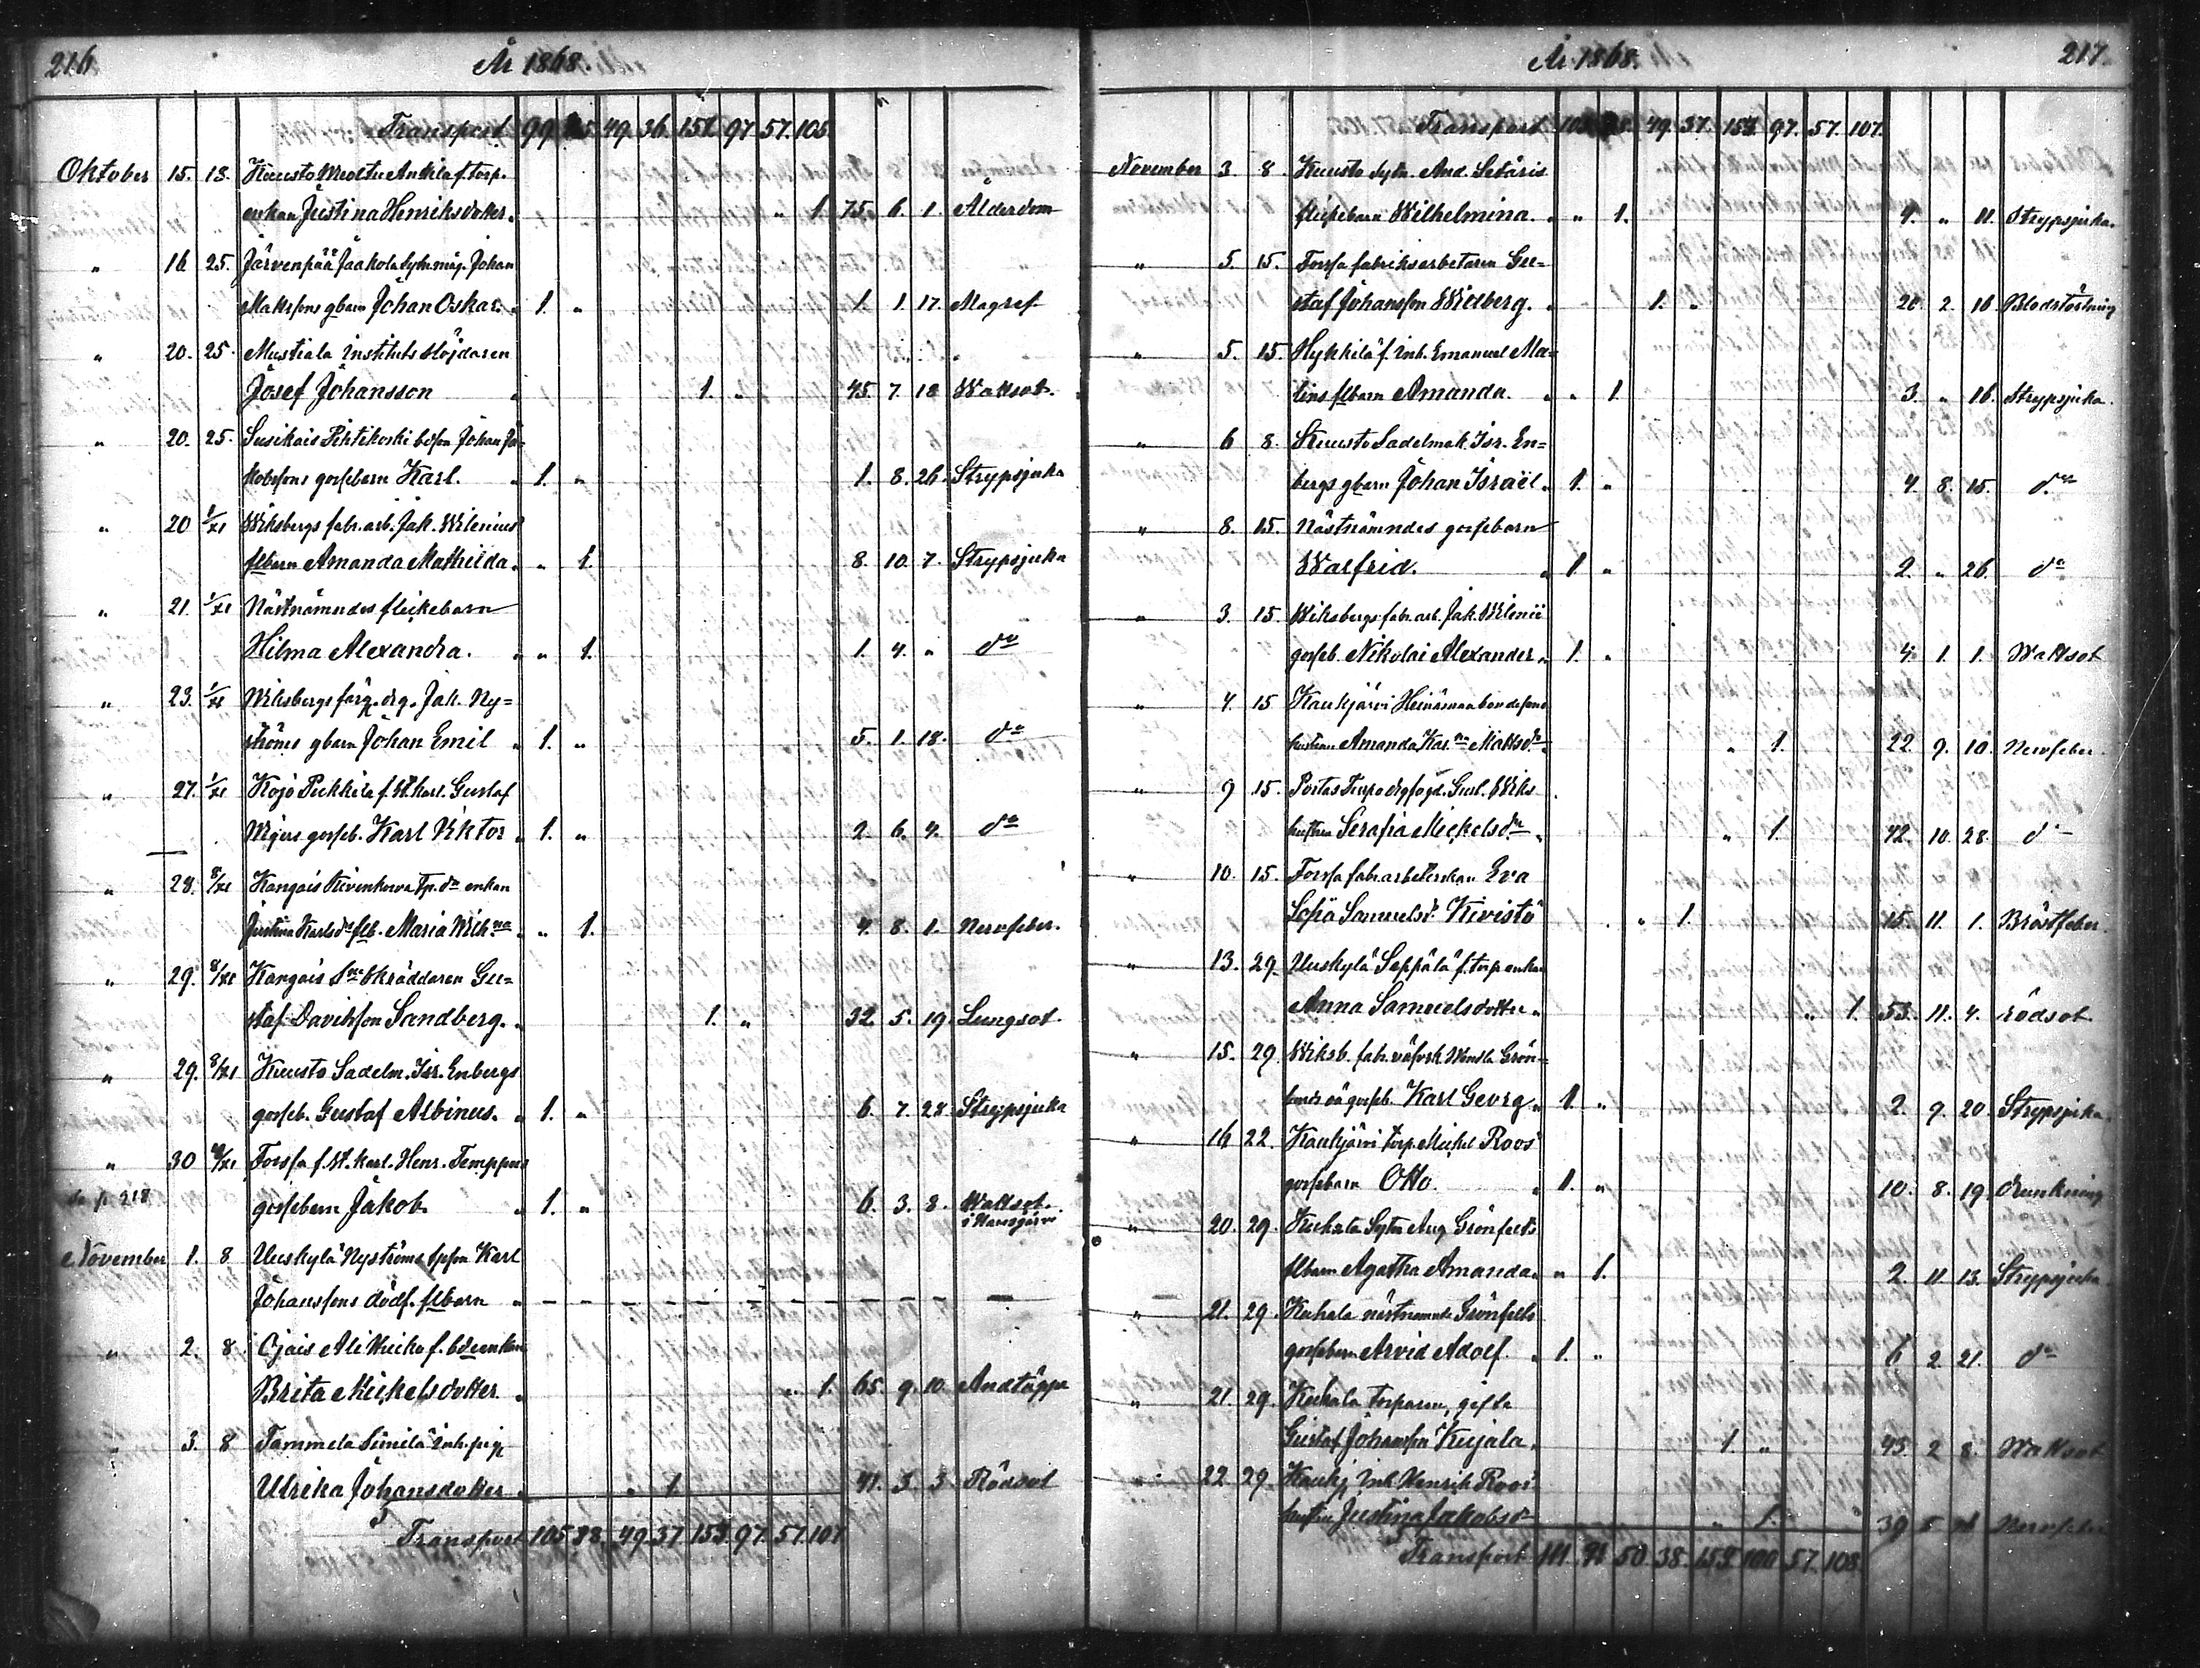 216
År 1868.
Transport 99. 85. 49. 36. 151. 97. 57. 105.
Oktober 15. 18. Kuusto torp.
enkan Justina Henriksdotter. " 1. 75. 6. 1. Ålderdom
" 16 25. Järvenpää Jaakola Johan
Mattssons gbarn Johan Oskar. 1. " 1. 1. 17. Magref
" 20. 25. Mustiala Instituts slöjdaren
Josef Johansson 1. " 45. 7. 18 Wattsot.
" 20. 25. Susikais Pihtikoski bdson Johan Ja-
kobssons gossebarn Karl. 1. " 1. 8. 26. Strypsjuka
" 20 1/XI Wiksbergs fabr. arb. Jak. Wilenius
flbarn Amanda Mathilda. " 1. 8. 10. 7. Strypsjuka
" 21. 1/XI Nästnämndes flickebarn
Hilma Alexandra. " 1. 1. 4. " do
" 23. 1/XI Wiksbergs färg. drg. Jak. Ny=
ströms gbarn Johan Emil 1. " 5. 1. 18. do
" 27. 1/XI Kojo Pekkila f. st. karl. Gustaf
gosseb. Karl Viktor 1. " 2. 6. 4. do
" 28. 8/XI Kangais enkan
Justina Karlsdr flb. Maria Wilhna " 1. 4. 8. 1. Nervfeber.
" 29. 8/XI Kangais Skräddaren Gu=
staf Davidsson Sandberg. 1. " 32. 5. 19. Lungsot.
" 29. 8/XI Kuusto Sadelm. Isr. Enbergs
gosseb. Gustaf Albinus. 1. " 6. 7. 28. Strypsjuka
" 30 Forssa f. st. karl. Henr. Temppus
p. 218 gossebarn Jakob. 1. " 6. 3. 8. Wattsot.
November 1. 8 Uuskylä Nyströms Karl
Johanssons dödf. flbarn
" 2. 8 Ojais Ali f. bdeenkan
Brita Mickelsdotter " 1. 65. 9. 10. Andtäppa
" 3. 8 Tammela Simila inh. pig.
Ulrika Johansdotter " 1. 41. 3. 3. Rödsot
Transport 105. 88. 49. 37. 153. 97. 57. 107.
217.
År 1868.
Transport 105. 88. 49. 37. 153. 97. 57. 107.
November 3. 8 Kuusto Sytn. And. Setäris
flickebarn Wilhelmina. " 1. 4. " 11. Strypsjuka.
" 5 15. Forssa fabriksarbetaren Gu=
staf Johansson Widberg. 1. " 20. 2. 16 Blodstörtning
" 5. 15. Hykkilä f. inh. Emanuel Ma=
lins flbarn Amanda. " 1. 3. " 16. Strypsjuka.
" 6 8. Kuusto Sadelmak. Isr. En=
bergs gbarn Johan Israël. 1. " 4. 8. 15. do
" 8. 15. Nästnämndes gossebarn
Walfrid. 1. " 2. " 26. do
" 3. 15. Wiksbergs fabr. arb. Jak. Wilenii
gosseb. Nikolai Alexander 1. " 4. 1. 1. Wattsot
" 4. 15 Kaukjärvi Heinämaa bondesons
hustrun Amanda Kar.na Mattsdr. " 1. 22. 9. 10. Nervfeber.
" 9 15. Portas Gust. Wiks
hustrun Serafia Mickelsdr " 1. 42. 10. 28. do
" 10. 15. Forssa fabr. arbeterskan Eva
Sofia Samuelsd. Kivistö " 1. 15. 11. 1. Bröstfeber.
" 13. 29. Uuskylä Seppälä f. torp. enkan
Anna Samuelsdotter " 1. 53. 11. 4. rödsot
" 15. 29. Wiksb. fabr. Wendla Grön-
oä gosseb. Karl Georg. 1. " 2. 9. 20 Strypsjuka
" 16 22. Kaukjärvi torp. Mickel Roos'
gossebarn Otto. 1. " 10. 8. 19. drunkning
" 20. 29. Kuhala Sytn Aug. Grönfelts
flbarn Agatha Amanda. " 1. 2. 11 13. Strypsjuka
" 21. 29. Kuhala nästnämnde Grönfelts
gossebarn Arvid Adolf. 1. " 6 2. 21. do
" 21. 29. Kuhala torparen, gifte
Gustaf Johansson Kujala. 1. " 45. 2 8. Wattsot
" 22. 29. Kaukj. inh. Henrik Roos'
hustru Justina Jakobsdr " 1. 39 Nervfeber
Transport 111. 91. 50. 38. 154. 100 57. 108.